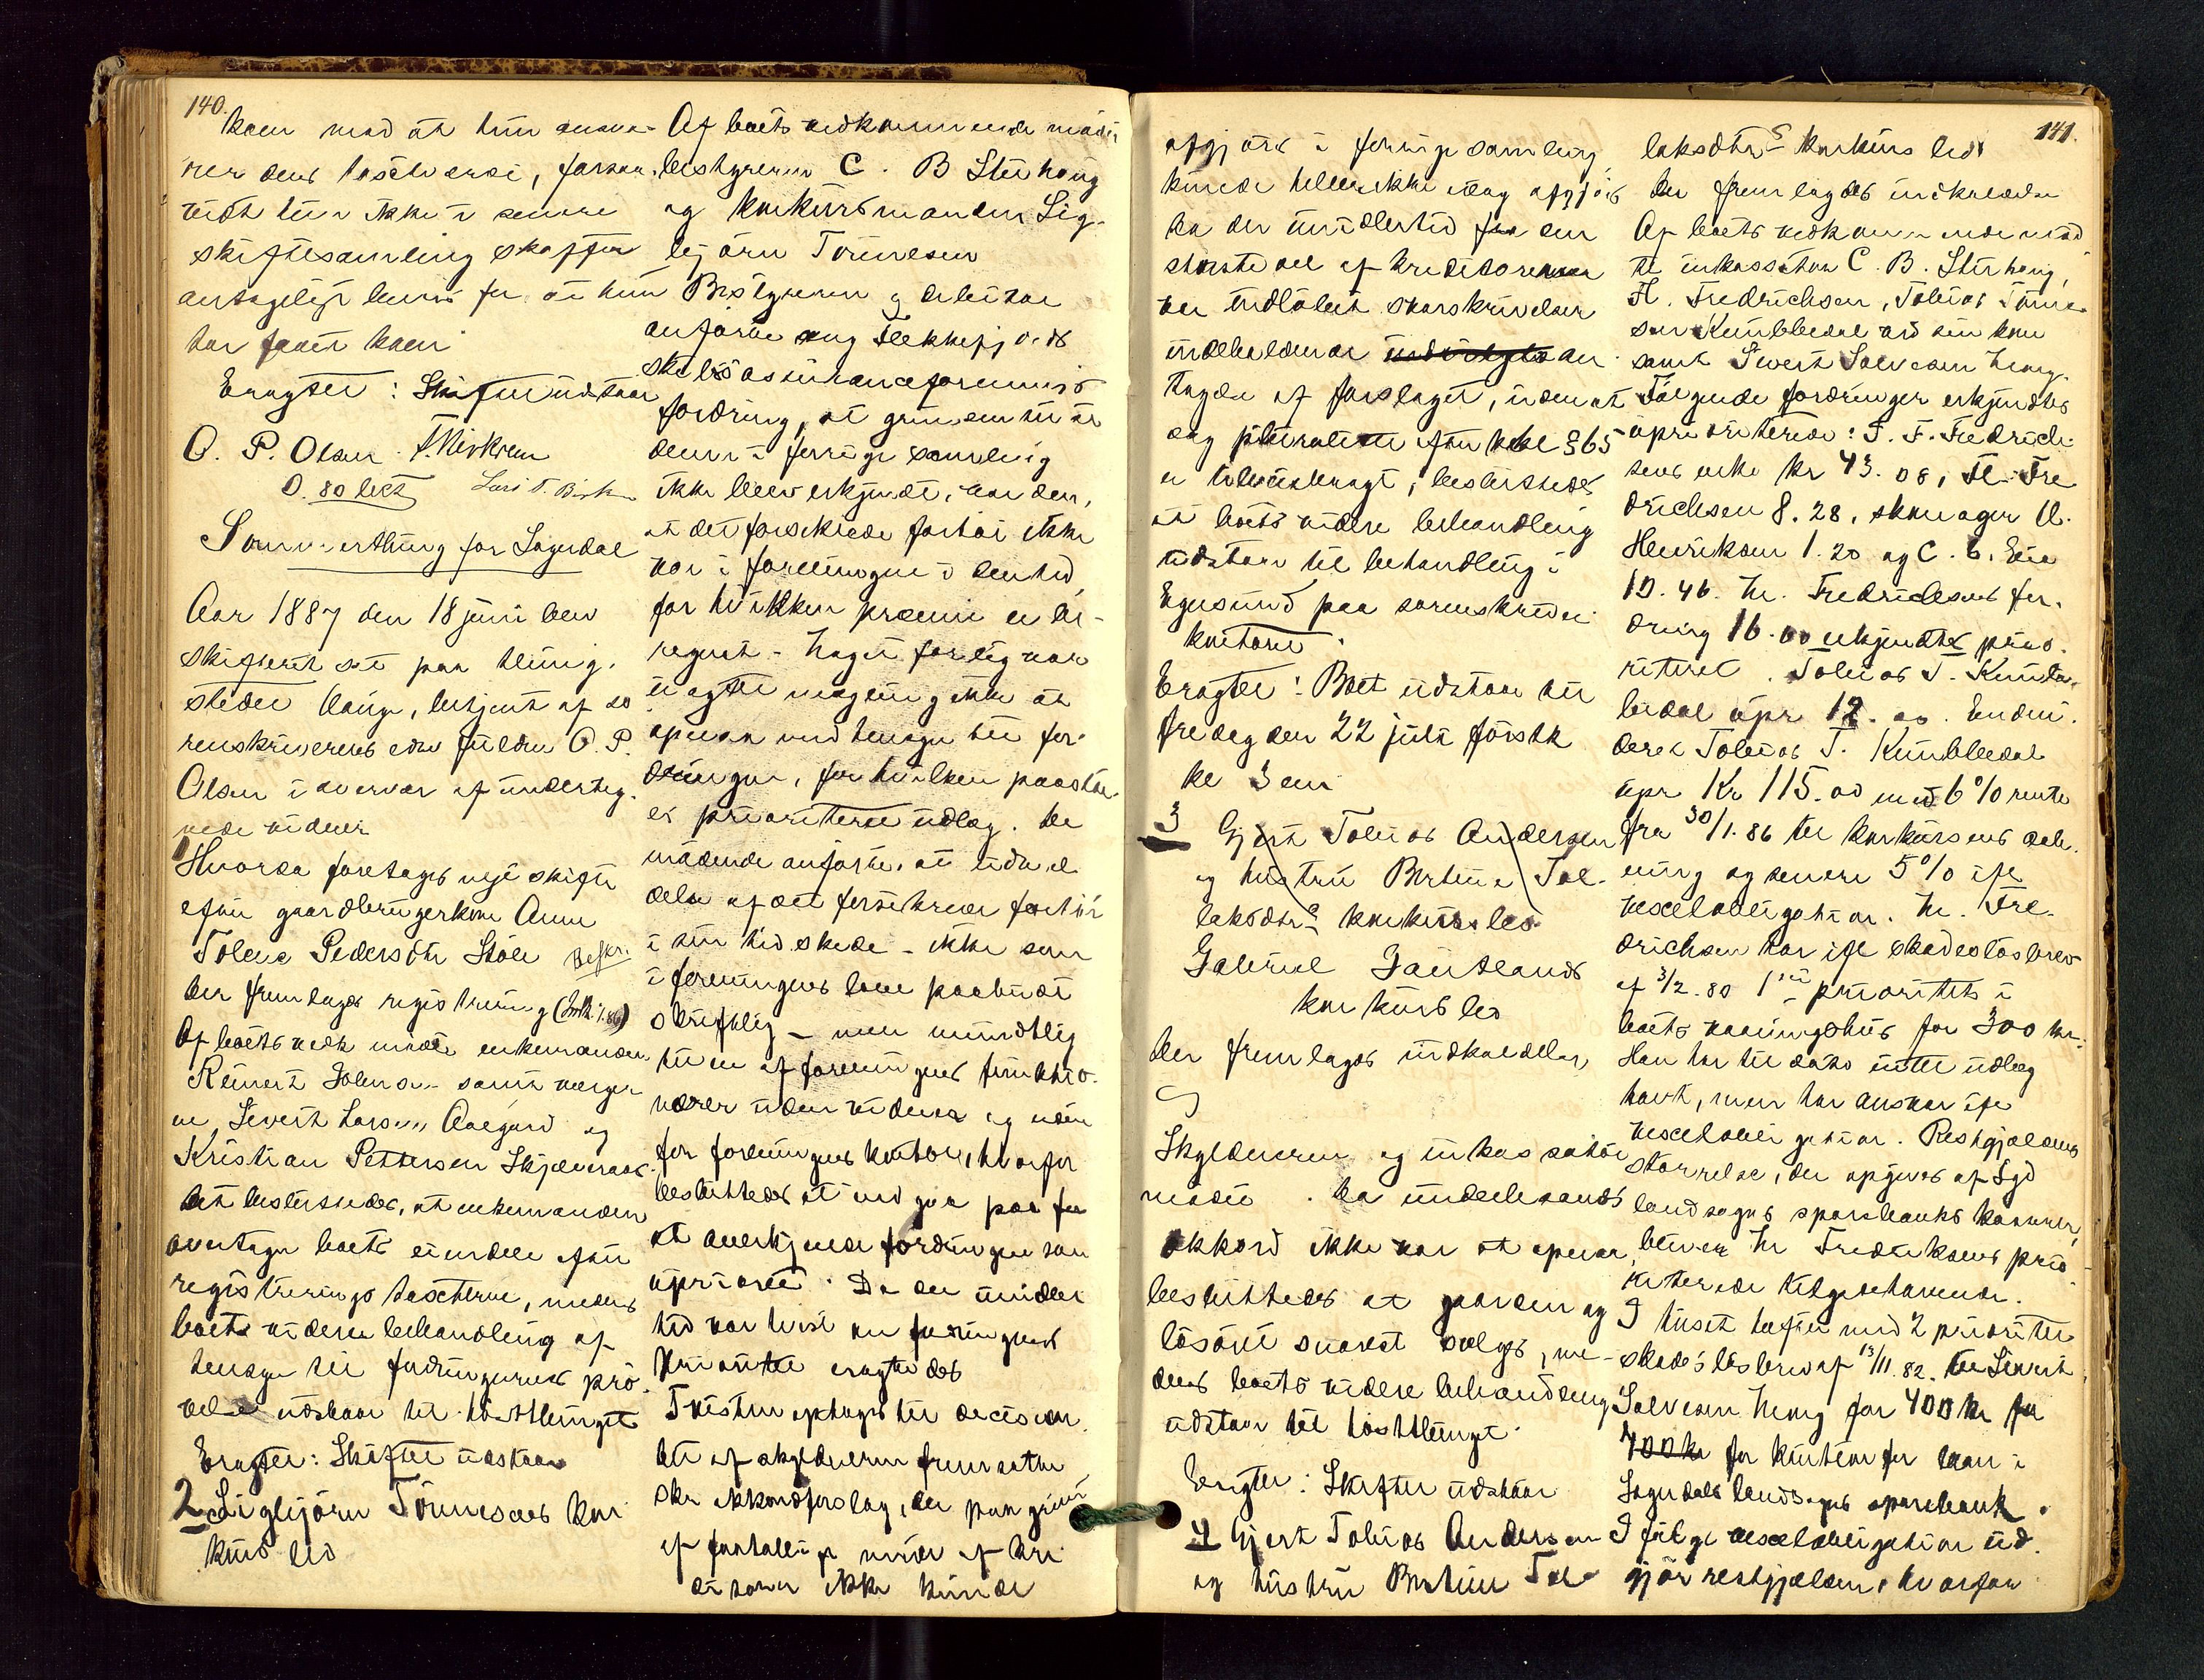 140.
koen mod at hun ansva-
rer dens taxtværdi, forsaa-
vidt hun ikke i senere
skiftesamling skaffer
antageligt bevis for at hun
har faaet koen
Eragtet: Skiftet udstaar
O. P. Olsen T. Kirkeen
0.80 bet
Sommerthing for Sogndal
Aar 1887 den 18 juni blev
skifteret sat paa thing-
stedet Hauge, betjent af so
renskriverens edsv fuldm O. P.
Olsen i overvær af underteg-
nede vidner
Hvorda foretoges nye skifte
efter gaardbrugerkone Anne
Tolena Pedersdtr Støle Beskr.
Der fremlagdes registrering
Af boets vedk mødte enkemanden
Reinert Johnsen samt verger
ne Sivert Larsen Aaegaard og
Kristian Pettersen Skjævraas.
Det besluttedes, at enkemanden
overtager boets eiendele efter
registreringstaxterne, medens
boets videre behandling af
hensyn til fordringernes prø-
velse udstaar til høstthinget
Eragtet: Skiftet udstaar
2 Sigbjørn Tønnesens kon-
kurs bo
Af boets vedkommende mødte
bestyreren C. B Stuhaug
og konkursmanden Sig-
bjørn Tønnesen
Bestyreren og debitor
anførte ang Flekkefjords
skibsassuranceforenings
fordring, at grunden til at
denne i forrige samling
ikke blev erkjendt, var den,
at det forsikrede fartøi ikke
var i foreningen i den tid,
for hvilken præmie er be-
regnet - Noget forlig var
 ikke at
opnaa med hensyn til for-
dringen, for hvilken paastaa-
es prioriteret udlag. De
mødende anførte, at udmel
delse af det forsikrede fartøi
i sin tid skede - ikke som
i foreningens love paabudt
skriftlig - men mundtlig
til en af foreningens funktio-
nærer uden vidner og uden
for foreningens kontor, hvorfor
besluttedes at indgaa paa
at anerkjende fordringen som
uprioritet. Da der imidler
tid var tvist om fordringens
prioritet eragtedes
Tvisten optages til decision
Det af skyldneren fremsatte
 akkordforslag, der paa grund
af faatalligt møde af kre-
ditorer ikke kunde
141.
afgjøres i forrige samling
kunde hellerikke idag afgjøres
da der imidlertid fra en
største del af kreditorerne
var indløbet skrivelser
indeholdende an-
tagelse af forslaget, uden at
dog pluralitet efter kkl § 65
er tilveiebragt, besluttedes
at boets videre behandling
udstaar til behandling i
Egersund paa sorenskriver-
kontoret.
Eragtet: Boet udstaar til
fredag den 22 juli førstk
kl 3 em
3 Gjert Tobias Andersen
og hustru Bertine Tol-
laksdtrs konkursbo
Gabriel Gautlands
konkurs bo
Der fremlagdes indkaldelse,
Skyldneren og inkassator
mødte. Da underhaands
akkord ikke var at opnaa,
besluttedes at gaarden og
løsøret snarest sælges, me-
dens boets videre behandling
udstaar til høstthinget.
Eragtet: Skiftet udstaar
4 Gjert Tobias Andersen
og hustru Bertine Tol-
laksdtrs konkurs bo
Der fremlagdes indkaldelse
Af boets vedkommende mød
te inkassator C. B. Stuhaug,
H. Fredrichsen, Tobias Tønne-
sen Kumbledal ved sin kone
samt Sivert Salvesen Haug.
Følgende fordringer erkjendtes
uprioriterede: T. F. Fredrich-
sens enke kr 43.08, H. Fre
drichsen 8.28, skomager A.
Henriksen 1.20 og C. C. Eia
19.46. Hr. Fredrichsens for-
dring 16.00 erkjendtes prio-
riteret. Tobias T. Kumb-
ledal upr 12.00. Endvi-
dere Tobias T. Kumbledal
upr Kr 115.00 med 6% rente
fra 30/1.86 til konkursens aab-
ning og senere 5% ifl
vexelobligation. Hr. Fre-
drichsen har ifl skadesløsbrev
af 3/2.80 1ste prioritets i
boets vaaningshus for 300 kr.
Han har til dato intet udlæg
havt, men har ansvar ifl
vexelobligation. Restgjældens
størrelse, der opgives af Sog
landsogns sparebanks kasserer,
bliver Hr Fredriksens prio-
riterede tilgodehavende.
I huset hefter med 2 prioritet
skadesløsbrev af 13/11.82 til Sivert
Salvesen Haug for 400 kr for
400 kr for kaution for laan i
Sogndals landsogns sparebank.
Ifølge vexelobligation ud-
gjør restgjælden, hvorfor